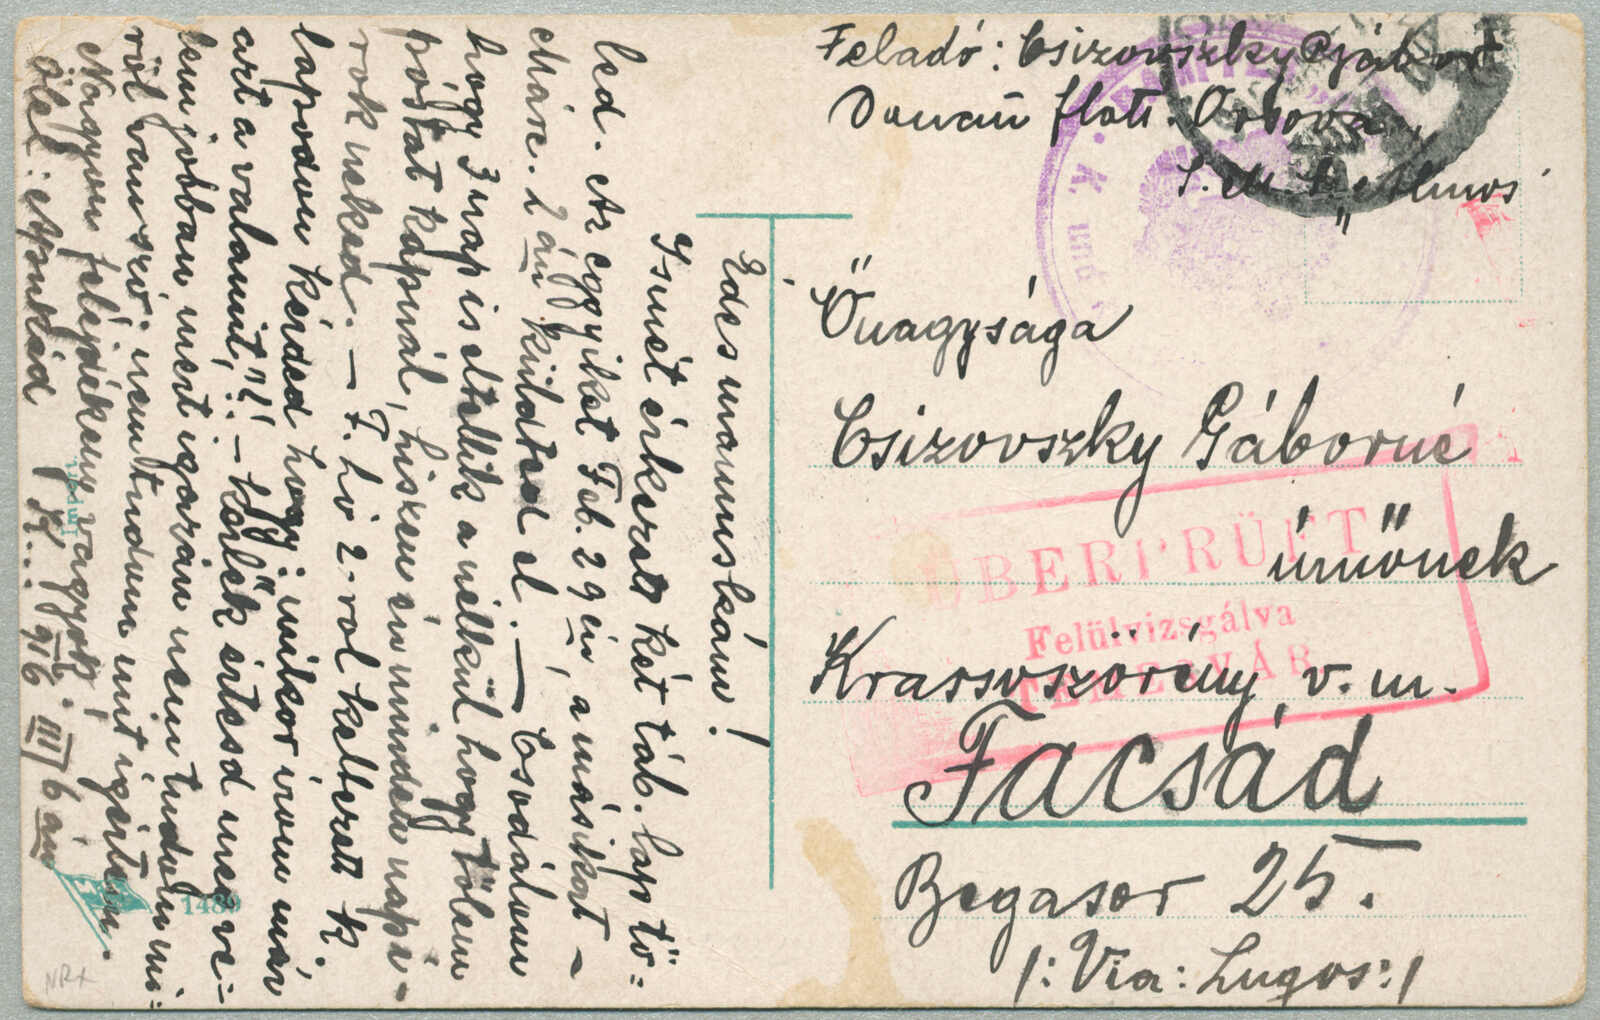 Feladó: Csizovszky Gábor
Donau flott. Orsova,
S. M. S. „Álmos"
K.
und
Őnagysága
Csizovszky Gáborné
úrnőnek
Krassószörény v. m.
Facsád
Begasor 25.
/: Via: Lugos :/
ÜBERPRÜFT
Felülvizsgálva
TEMESVÁR
Édes mamuskám!
Ismét érkezett két táb. lap tő=
led. Az egyiket Feb. 29 én, a másikat –
Márc. 2 án küldted el. — Csodálom
hogy 3 nap is eltellik a nélkül hogy tőlem
póstát kapnál, hiszen én minden nap í-
rok neked. — F. hó 2-ról keltezett k.
lapodon kérded hogy: mikor irom már
azt a valamit,"?! – Kérlek értesd meg ve=
lem jobban mert igazán nem tudom mi=
ről van szó. nem tudom mit igértem.
Nagyon felejdékeny vagyok.
ölel: Apukád
916 III/6 án
1489
NRX